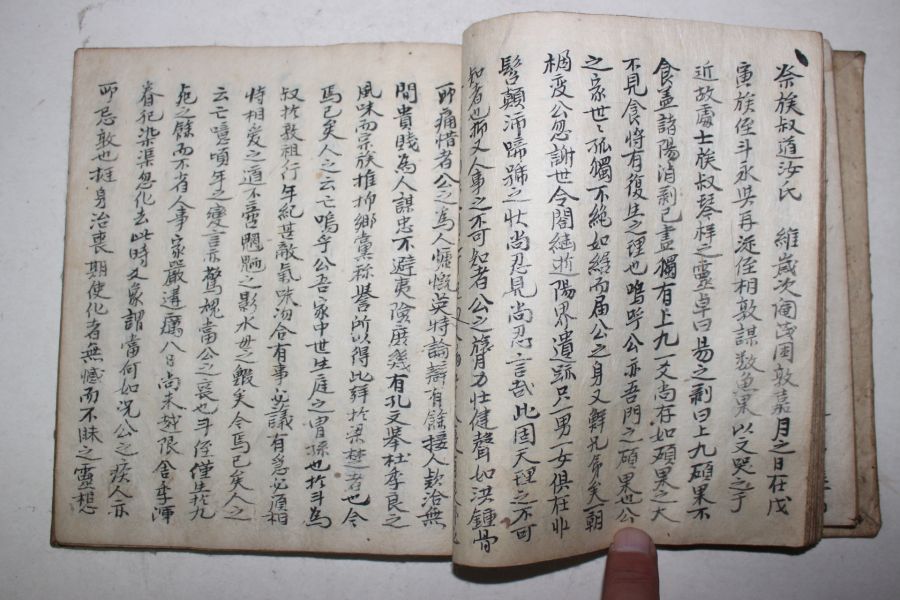 祭族叔道汝氏　維歲次閼茂困敦嘉月之日在戊
寅族侄斗永與再從侄相敦謀數魚果以文哭之于
近故處士族叔琴梓之靈卓曰易之剝曰上九碩果不
食盖諸陽消剝已盡獨有上九一爻尚存如碩果之大
不見食將有復生之理也嗚呼公亦吾門之碩果也公
之家世〻孤獨不絶如綫而届公之身又鮮兄弟矣一朝
公忽謝世令閤繼逝陽界遺跡只一男一女俱在丱
髫顚沛啼號之狀尚忍見尚忍言哉此固天理之不可
知者也抑又人事之不可知者公之旅力壯健聲如洪鍾骨
所痛惜者公之爲人慷慨英特論壽有餘接人款洽無
間貴賤爲人謀忠不避夷險庶幾有孔文擧杜季良之
風味而宗族推抑鄕黨稱譽所以得比鄰於梁楚者也今
焉已矣人之云亡嗚乎公吾家中世生庭之冑孫也於斗爲
叔於敦祖行年紀甚敵氣味沕合有事必議有急必須相
恃相愛之道不啻䮄䮄之影水母之鰕矣今焉已矣人之
云亡噫頃年之變言亦驚怳當公之喪也斗侄僅生於九
死之餘而不省人事家嚴遘癘八日尚未城限舍季渾
眷犯染渠忽化去此時又象謂當何如况公之疾人亦
所忌敦也挺身治喪期使化者無憾而不昧之靈想